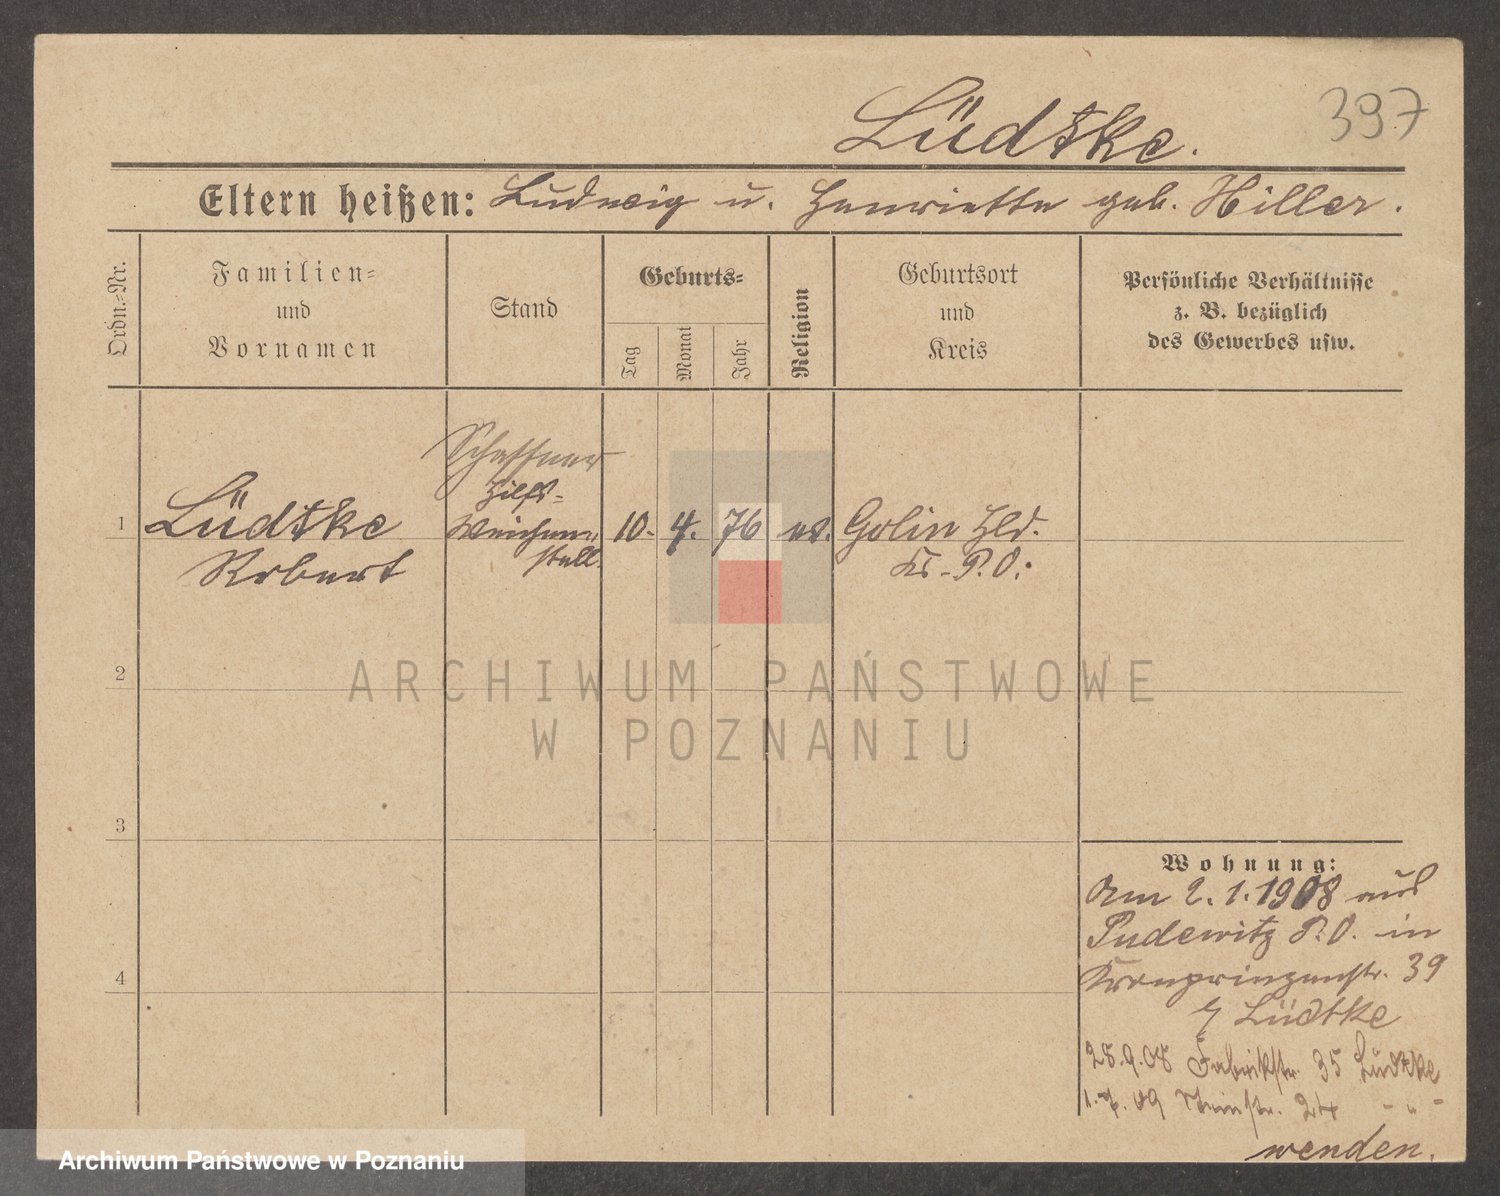 397
Lüdtke.
Eltern heißen: Ludwig u. Henriette geb. Hiller.
Ordn.-Nr.
Familien-
und
Vornamen
Stand
Geburts-
Tag
Monat
Jahr
Religion
Geburtsort
und
Kreis
Persönliche Verhältnisse
z. B. bezüglich
des Gewerbes usw.
Schaffner
Hilfs-
Weichen-
stell.
1 Lüdtke 10. 4. 76 ev. Golin Hld.
Robert Kr. P.O.
2
3
4
Wohnung:
Am 2.1.1908 aus
Pudewitz P.O. in
Kronprinzenstr. 39
Lüdtke
28.9.08 Fabrikstr. 35 Lüdtke
09 24 - " -
wenden.
ARCHIWUM PAŃSTWOWE
W POZNANIU
Archiwum Państwowe w Poznaniu